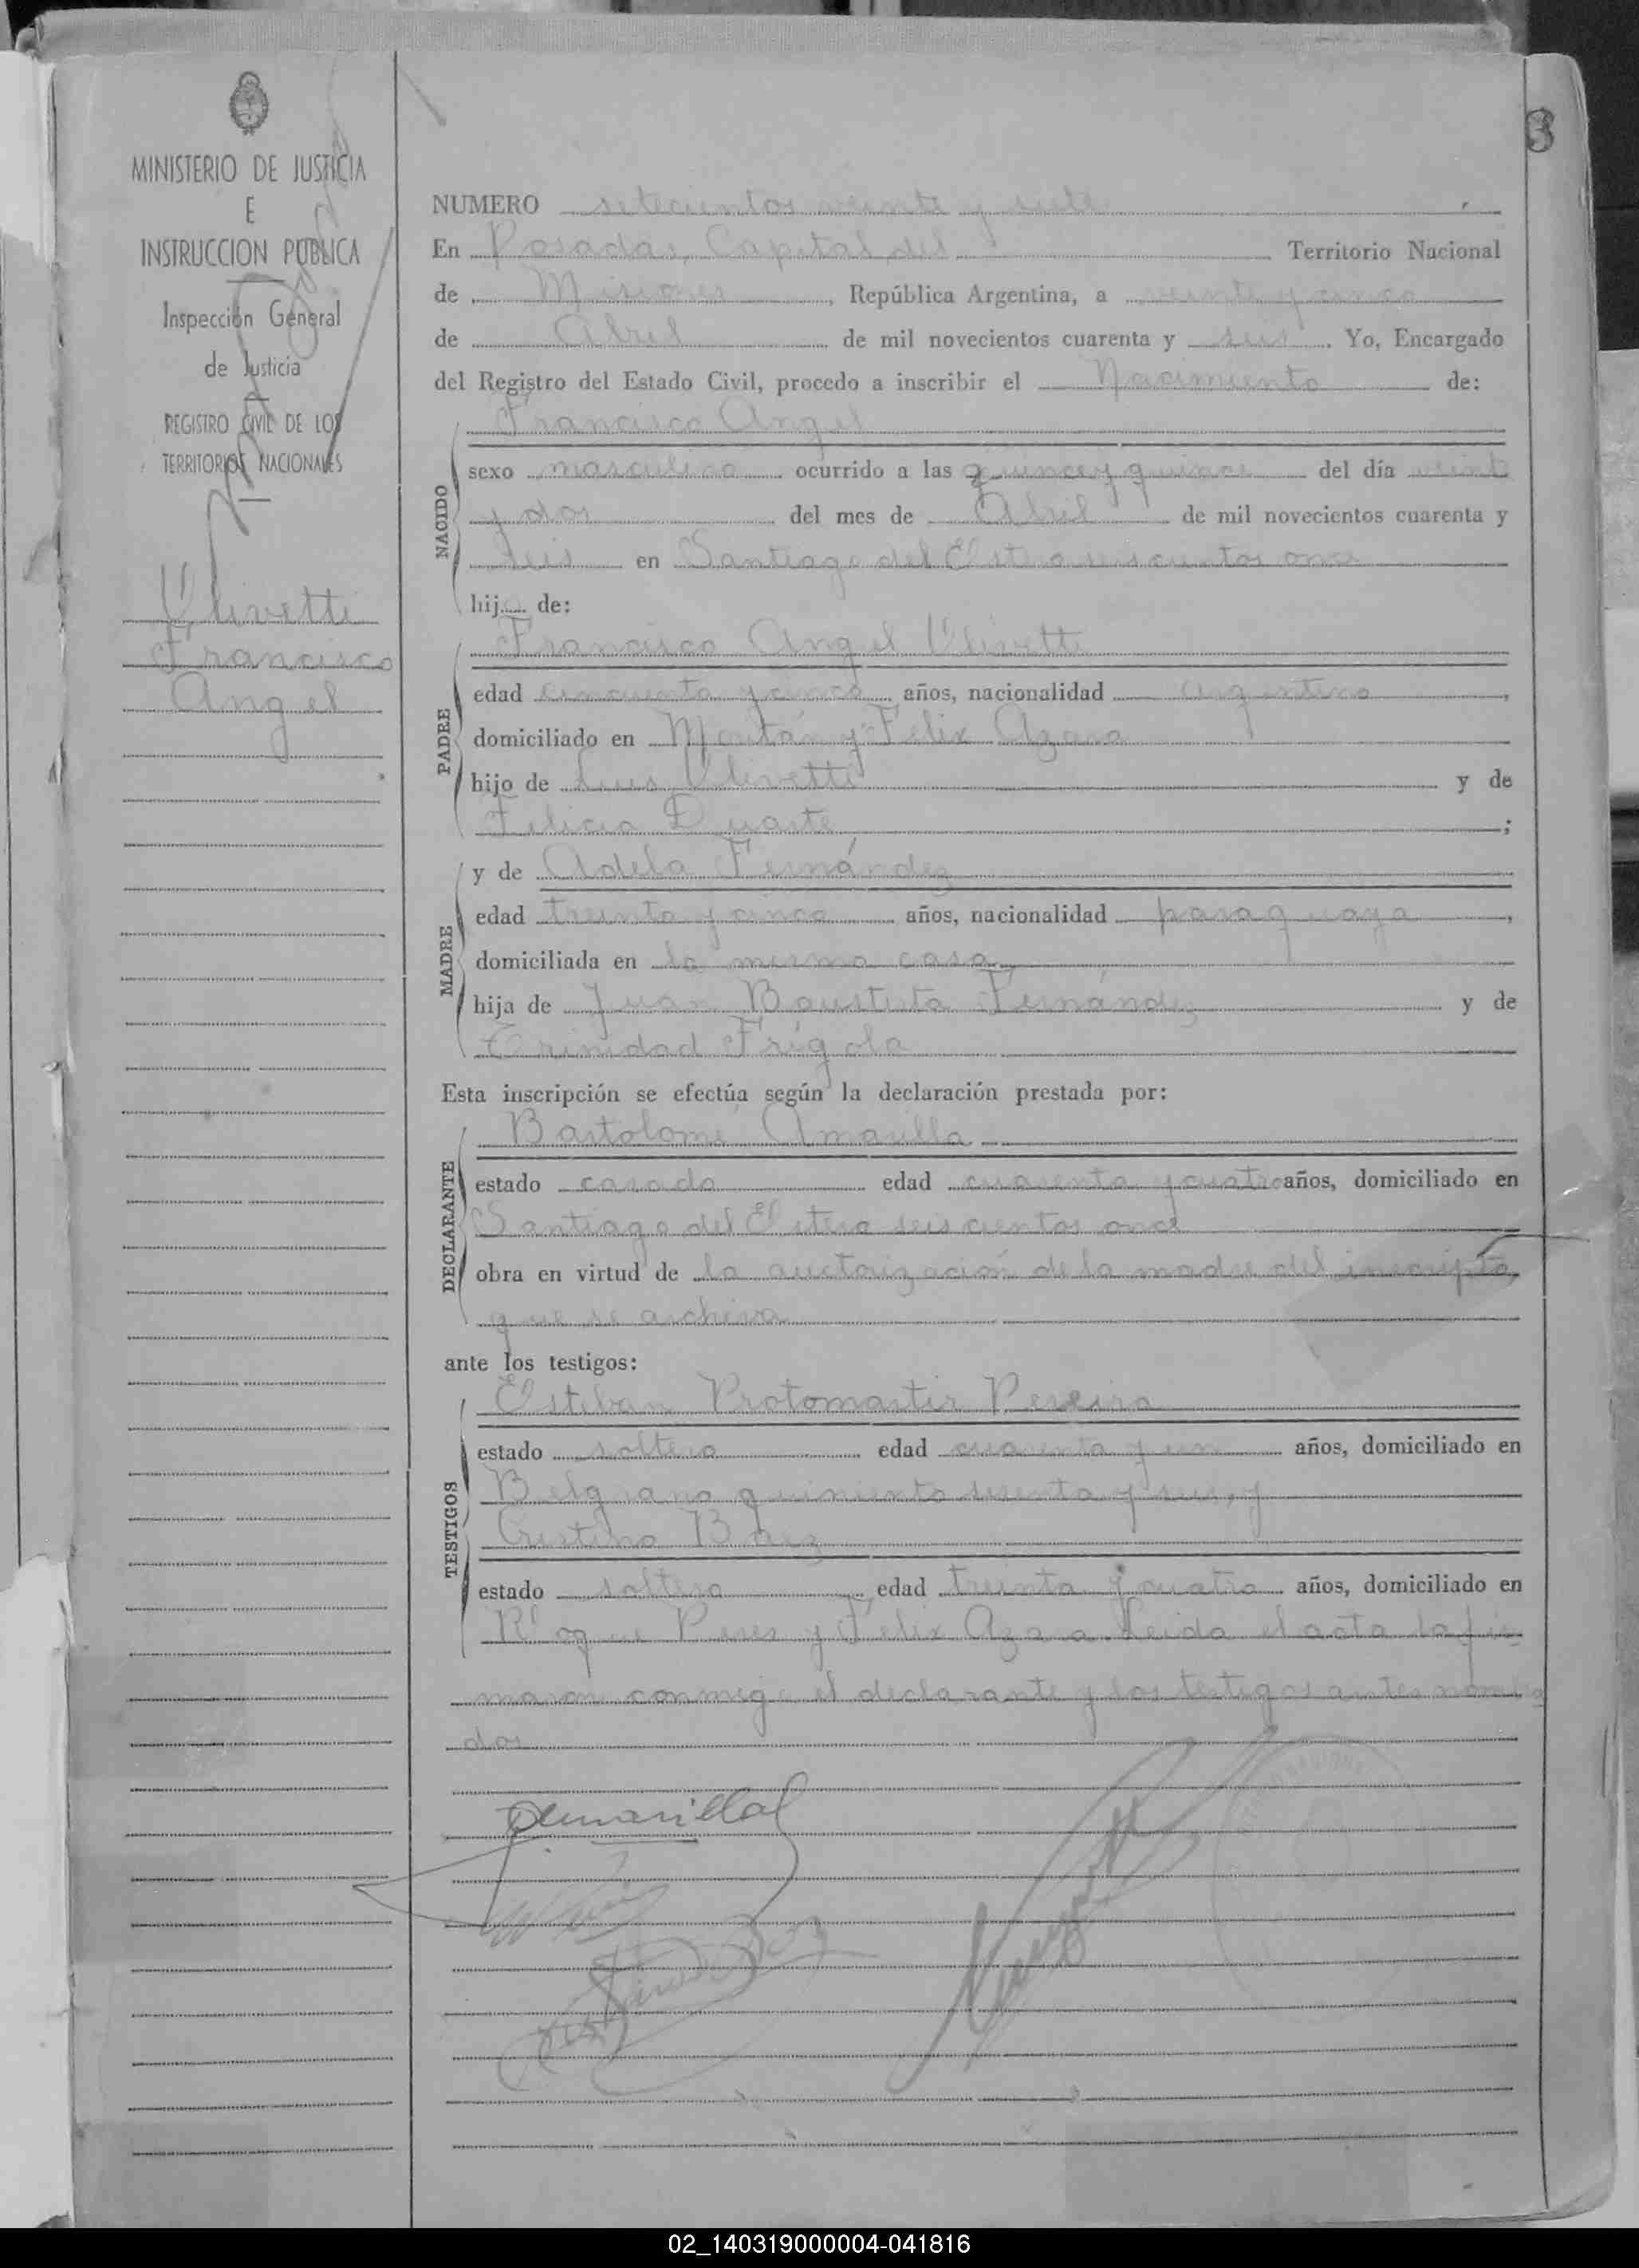 MINISTERIO DE JUSTICIA
E
INSTRUCCION PUBLICA
Inspección General
de Justicia
REGISTRO CIVIL DE LOS
TERRITORIOS NACIONALES
Olivetti
Francisco
Angel
3
NUMERO setecientos veinte y siete
En Posadas, Capital del Territorio Nacional
de Misiones, República Argentina, a veinte y cinco
de Abril de mil novecientos cuarenta y seis. Yo, Encargado
del Registro del Estado Civil, procedo a inscribir el Nacimiento de:
NACIDO
Francisco Angel
sexo masculino ocurrido a las quince y quince del día veinte
y dos del mes de Abril de mil novecientos cuarenta y
seis en Santiago del Estero seiscientos once
hijo de:
PADRE
Francisco Angel Olivetti
edad cincuenta y cinco años, nacionalidad argentino,
domiciliado en Maitán y Félix Azara
hijo de Luis Olivetti y de
Felicia Duarte;
MADRE
y de Adela Fernández
edad treinta y cinco años, nacionalidad paraguaya,
domiciliada en la misma casa,
hija de Juan Bautista Fernández y de
Trinidad Frígola
Esta inscripción se efectúa según la declaración prestada por:
DECLARANTE
Bartolomé Amarilla
estado casado edad cuarenta y cuatro años, domiciliado en
Santiago del Estero seiscientos once
obra en virtud de la auctorización de la madre del inscripto,
que se archiva
ante los testigos:
TESTIGOS
Esteban Protomartir Pereira
estado soltero edad cuarenta y un años, domiciliado en
Belgrano quiniento sesenta y seis, y
Cristino Báez
estado soltero, edad treinta y cuatro años, domiciliado en
Roque Perez y Félix Azara. Leida el acta la fir
maron conmigo el declarante y los testigos antes nombra
dos
02_140319000004-041816